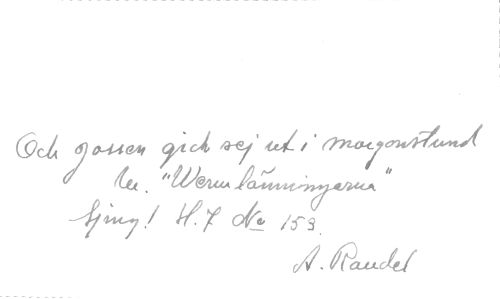 Och gossen gick sej ut i morgonstund
ur. "Wermlänningarna"
Sjung! H. 7 No 159.
A. Randel